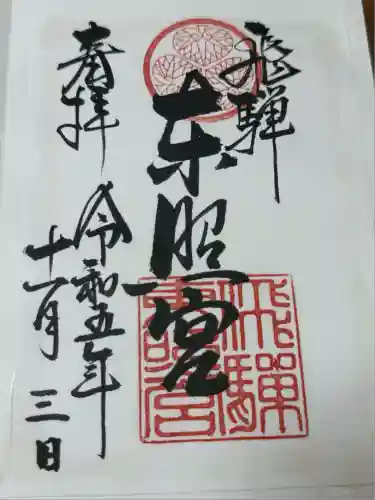 飛騨
東照宮
奉拝
令和五年
十一月三日
飛騨
東照宮